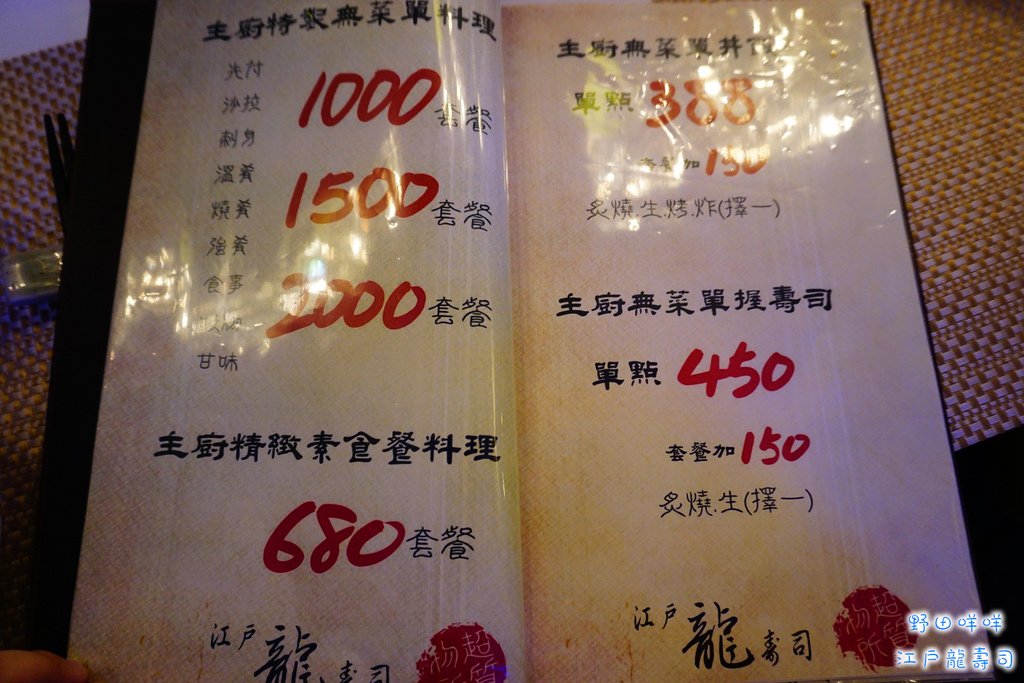 主廚特製無菜單料理
先付
沙拉
刺身
溫肴
燒肴
強肴
食事
甘味
1000套餐
1500套餐
2000套餐
主廚精緻素食餐料理
680套餐
江戶龍壽司
主廚無菜單丼飯
單點 388
套餐加150
炙燒.生.烤.炸(擇一)
主廚無菜單握壽司
單點 450
套餐加150
炙燒.生(擇一)
江戶龍壽司
野田咩咩
江戶龍壽司